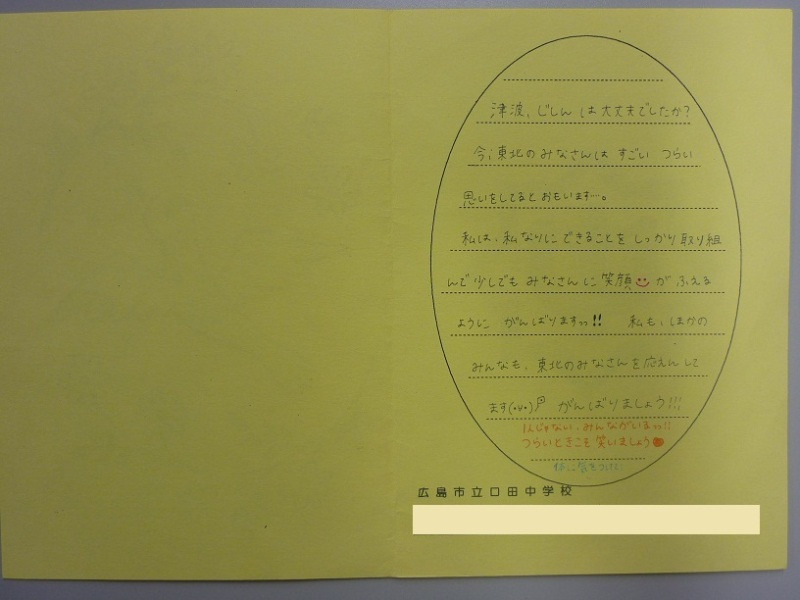 津波、じしんは大丈夫でしたか?
今、東北のみなさんは すごい つらい
思いをしてるとおもいます…。
私は、私なりにできることを しっかり取り組
んで少しでもみなさんに笑顔がふえる
ように がんばりますっっ!! 私も、ほかの
みんなも、東北のみなさんを応えんして
ます(•ω•) がんばりましょう!!!
1人じゃない、みんながいるっっ!!
つらいときこそ笑いましょう
体に気をつけて!
広島市立口田中学校